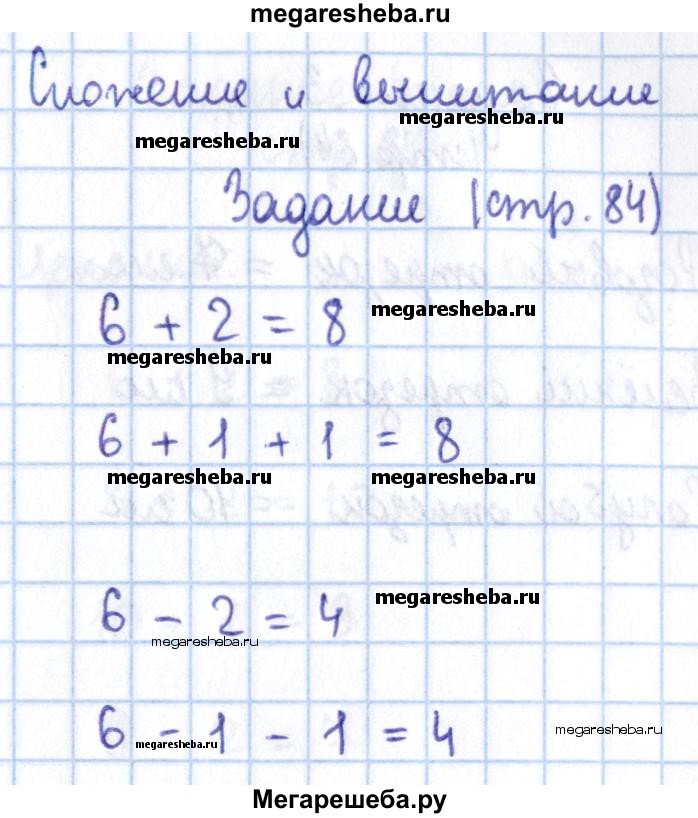 megaresheba.ru
Сложение и вычитание
megaresheba.ru
megaresheba.ru
Задание (стр. 84)
6 + 2 = 8
megaresheba.ru
megaresheba.ru
6 + 1 + 1 = 8
megaresheba.ru
megaresheba.ru
6 - 2 = 4
megaresheba.ru
megaresheba.ru
6 - 1 - 1 = 4
megaresheba.ru
megaresheba.ru
Мегарешеба.ру